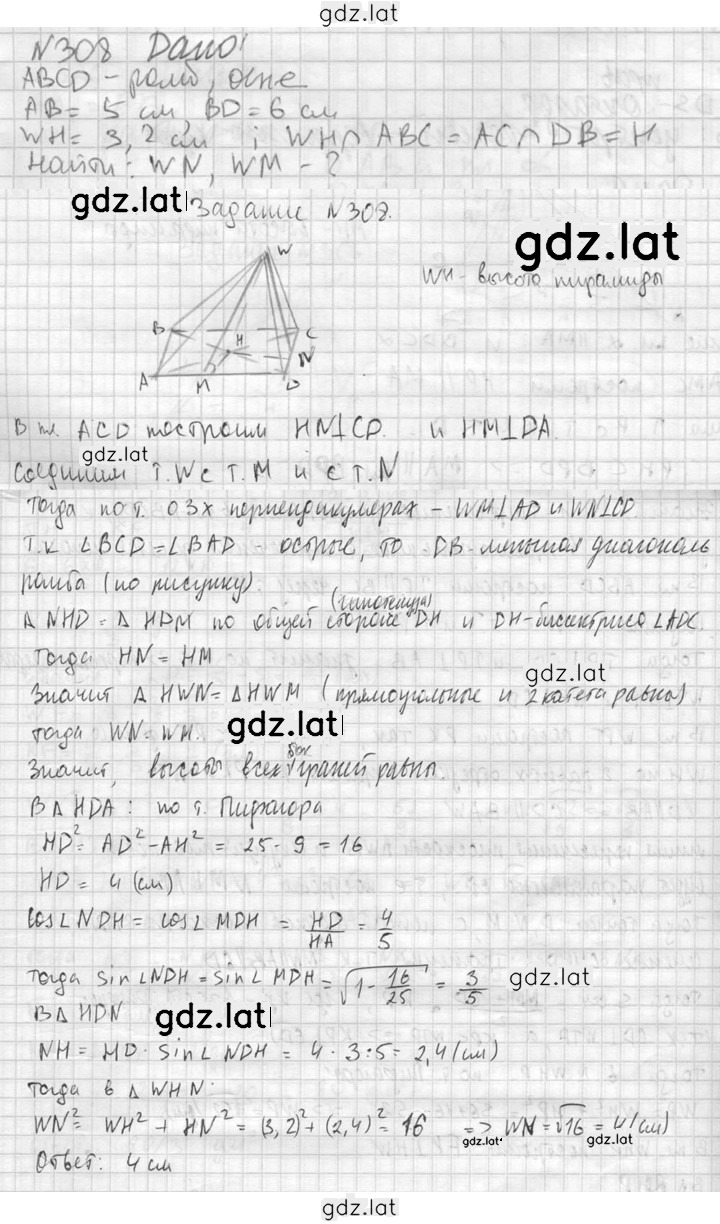 gdz.lat
N308 Дано!
ABCD - ромб, осне
AB = 5 см, BD = 6 см
WH = 3,2 см ; WH∩ABC = AC∩DB = H
Найти: WN, WM - ?
gdz.lat Задание N308.
gdz.lat
WH - высота пирамиды
W
B
H
C
N
A
M
D
В пл. ACD построим HN⊥CD. и HM⊥DA.
gdz.lat
Соединим т. W с т. M и с т. N
Тогда по т. о 3х перпендикулярах - WM⊥AD и WN⊥CD
Т.к ∠BCD = ∠BAD - острые, то DB - меньшая диагональ
ромба (по рисунку).
(гипотенуза)
Δ NHD = Δ HDM по общей стороне DH и DH - биссектриса ∠ADC.
Тогда HN = HM
gdz.lat
Значит Δ HWN = Δ HWM (прямоугольные и 2 катета равны)
тогда WN = WH. gdz.lat
бок
Значит, высоты всех граней равны
В Δ HDA: по т. Пифагора
HD² = AD² - AH² = 25 - 9 = 16
HD = 4 (см)
gdz.lat
cos∠NDH = cos∠MDH = HD/HA = 4/5
Тогда sin∠NDH = sin∠MDH = √1 - 16/25 = 3/5 gdz.lat
В Δ HDN gdz.lat
NH = HD · sin∠NDH = 4 · 3 : 5 = 2,4 (см)
Тогда в Δ WHN:
WN² = WH² + HN² = (3,2)² + (2,4)² = 16 => WN = √16 = 4 (см)
gdz.lat gdz.lat
Ответ: 4 см
gdz.lat